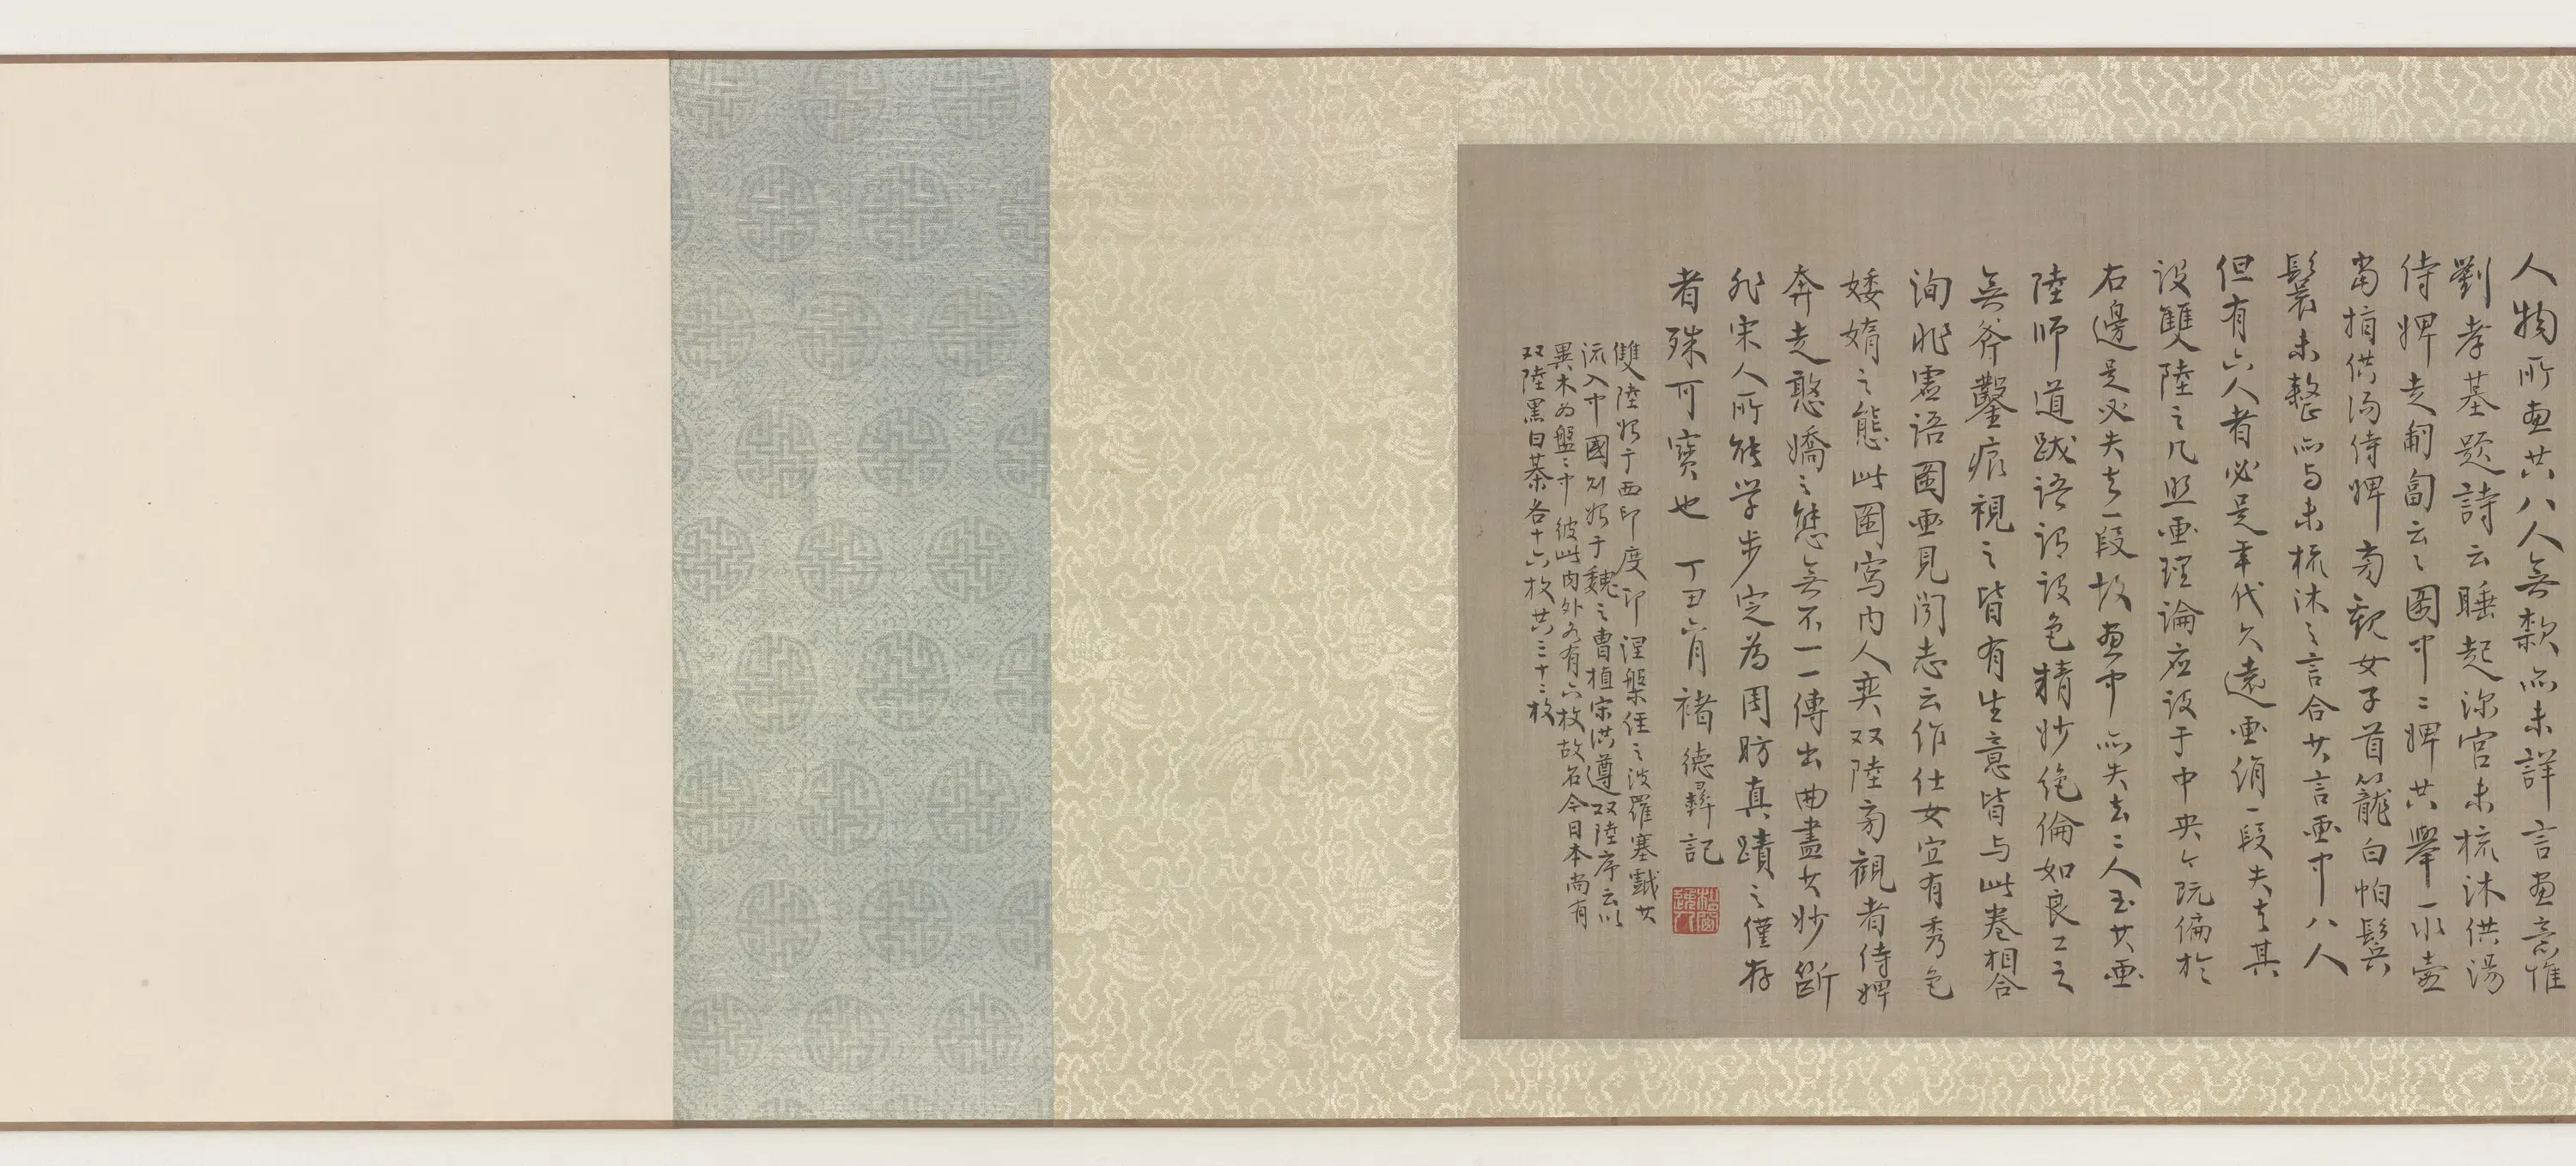 人物所畫共八人無款而未詳言畫意惟
劉孝基題詩云睡起深宮未梳沐供湯
侍婢走匍匐云云圖中二婢共舉一水壺
當揎供湯侍婢旁觀女子首籠白帕鬓
鬟未整而与未梳沐之言合其言画中八人
但有六人者必是年代久遠画絹一段失去其
設雙陸之几照画理論应設于中央今既偏於
右邊是必失去一段故畫中而失去二人至其画
陸師道跋语谓設色精妙绝倫如良工之
無斧鑿痕視之皆有生意皆与此卷相合
洵非虛语圖画見聞志云作仕女宜有秀色
婑媠之態此圖寫内人奕双陸旁觀者侍婢
奔走憨嬌之態無不一一傳出曲盡其妙斷
非宋人所能学步定為周昉真蹟之僅存
者殊可寶也 丁丑六月 褚德彝記
雙陸始于西印度即涅槃经之波羅塞戯其
流入中國则始于魏之曹植宋洪遵双陸序云以
異木为盤盤中彼此内外各有六枚故名今日本尚有
双陸黑白棊各十六枚共三十二枚